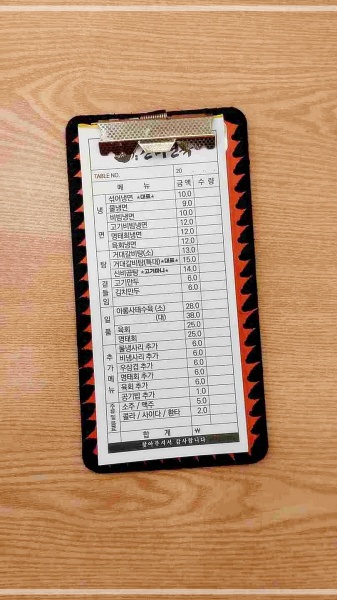 TABLE NO. 20
메 뉴 금 액 수 량
냉면
섞어냉면 *대표* 10.0
물냉면 9.0
비빔냉면 10.0
고기비빔냉면 12.0
명태회냉면 12.0
육회냉면 12.0
탕
거대갈비탕(소) 13.0
거대갈비탕(특대)*대표* 15.0
신비곰탕 *고기마니* 14.0
곁들임
고기만두 6.0
김치만두 6.0
일품
아롱사태수육 (소) 28.0
(대) 38.0
육회 25.0
명태회 25.0
추가메뉴
물냉사리 추가 6.0
비냉사리 추가 6.0
우삼겹 추가 6.0
명태회 추가 6.0
육회 추가 6.0
공기밥 추가 1.0
소주 / 맥주 5.0
콜라 / 사이다 / 환타 2.0
합 계 ₩
찾아주셔서, 감사합니다